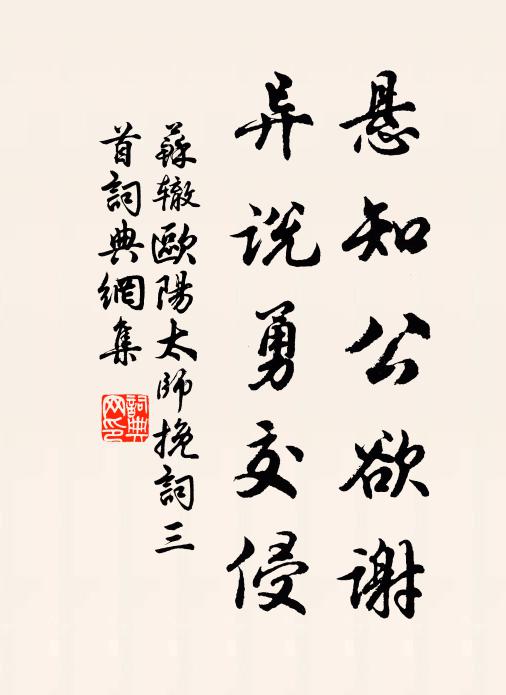 悬知公欲谢
异说勇交侵
蘇辙歐陽太師挽詞三
首詞典網集
詞典網印